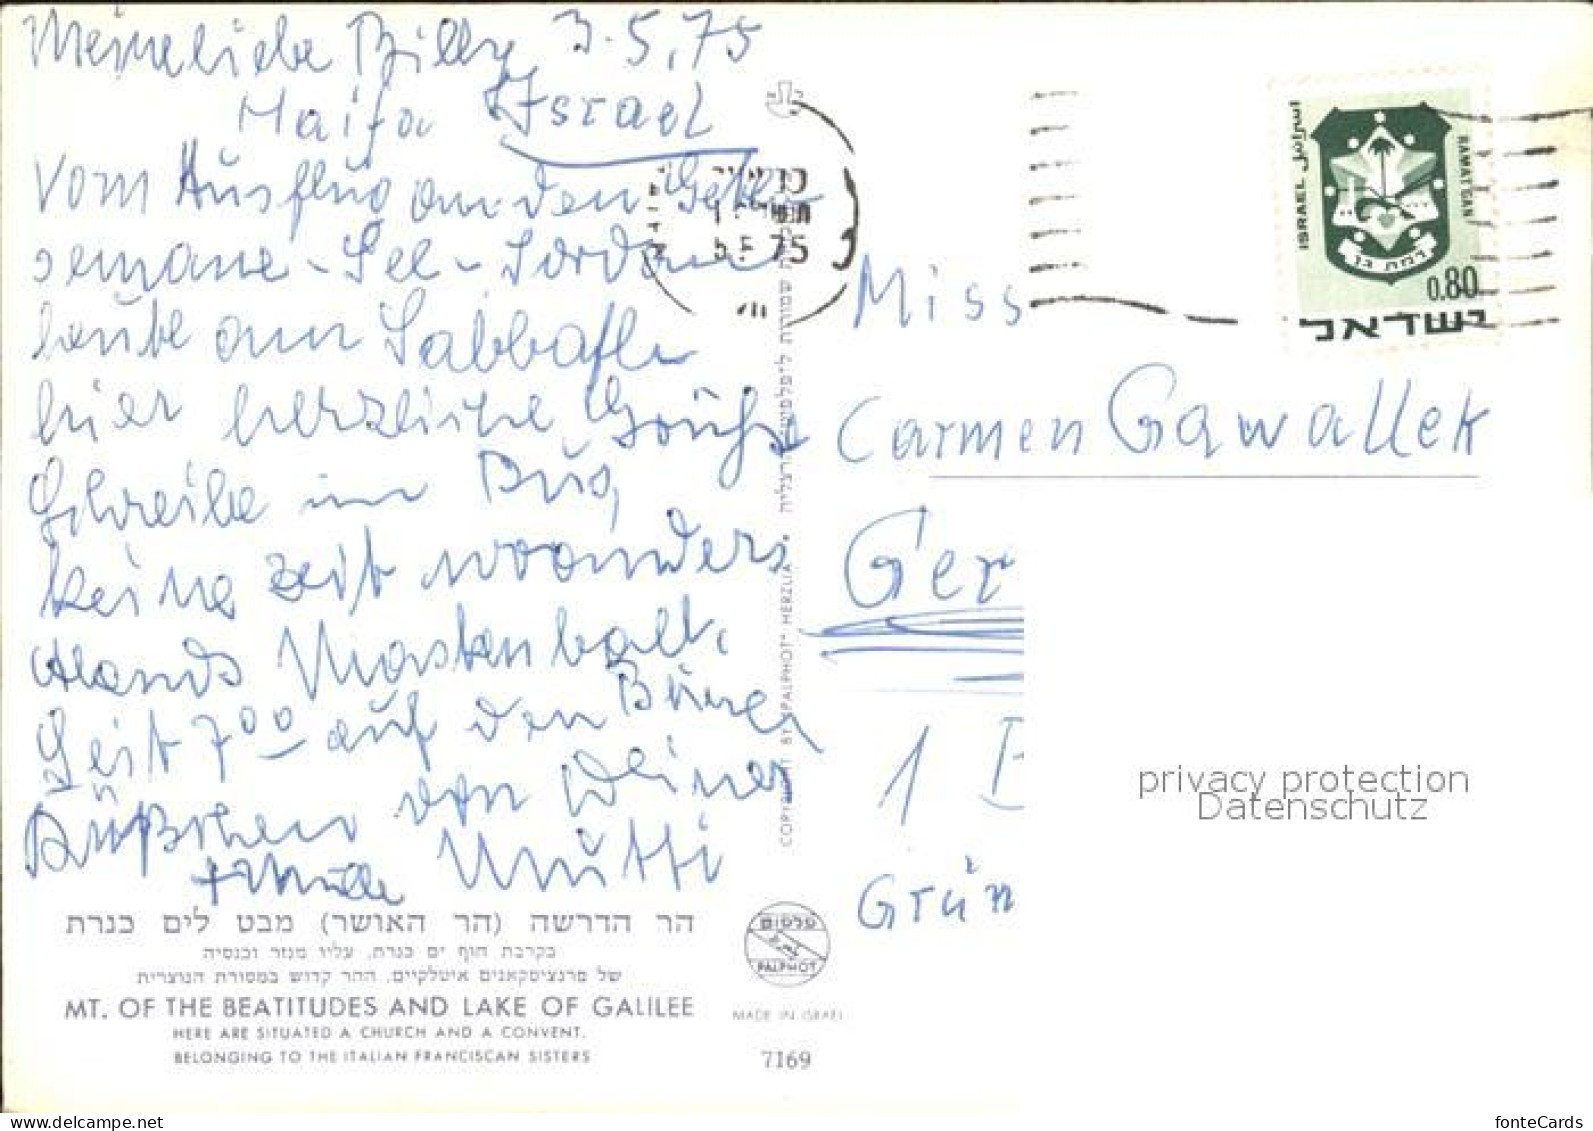 Meine liebe Billy 3.5.75
Haifa Israel
Vom Ausflug an den Geth
semane-See-Jordan
heute am Sabbath
hier herzliche Grüße
Schreibe im Bus,
keine Zeit woanders
Seit 7⁰⁰ auf den
Küßchen von Deiner
Mutti
הר הדרשה (הר האושר) מבט לים כנרת
בקרבת חוף ים כנרת, עליו מנזר וכנסיה
של פרנציסקאנים איטלקיים. ההר קדוש במסורת הנוצרית
MT. OF THE BEATITUDES AND LAKE OF GALILEE
HERE ARE SITUATED A CHURCH AND A CONVENT.
BELONGING TO THE ITALIAN FRANCISCAN SISTERS
COPYRIGHT BY "PALPHOT" HERZLIA
פלפוט
PALPHOT
MADE IN ISRAEL
7169
75
VII
اسرائيل
ISRAEL
RAMAT GAN
רמת גן
0.80
ישראל
Miss
Carmen Gawallek
Ger
1
Grün
privacy protection
Datenschutz
fonteCards